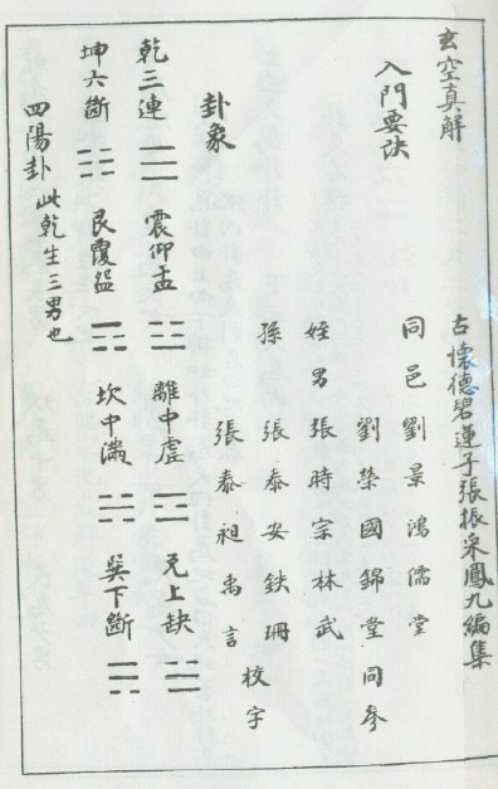 玄空真解
古懷德碧蓮子張振采鳳九編集
入門要訣
同邑劉景鴻儒堂
劉榮國錦堂同參
姪男張時宗林武
孫張泰安鉄珊
張泰昶禹言
校字
卦象
乾三連☰震仰盂☳離中虛☲兌上缺☱
坤六斷☷艮覆盌☶坎中滿☵巽下斷☴
四陽卦此乾生三男也